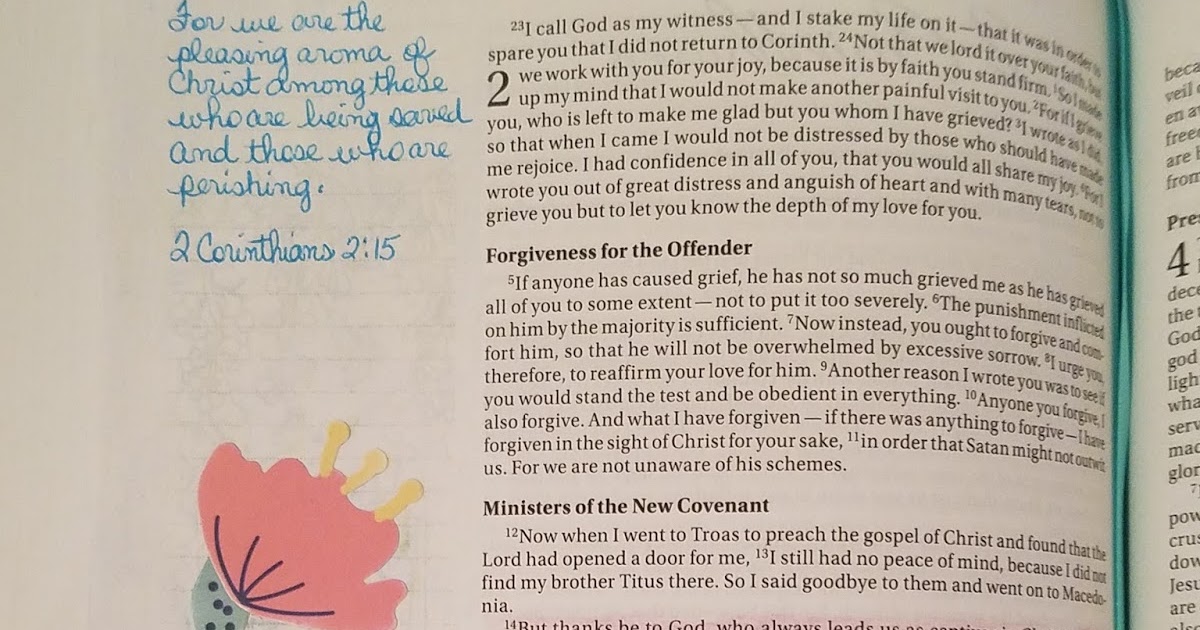 For we are the
pleasing aroma of
Christ among those
who are being saved
and those who are
perishing.
2 Corinthians 2:15
23I call God as my witness — and I stake my life on it — that it was in order to
spare you that I did not return to Corinth. 24Not that we lord it over your faith, but
2 we work with you for your joy, because it is by faith you stand firm. 1So I made
up my mind that I would not make another painful visit to you. 2For if I grieve
you, who is left to make me glad but you whom I have grieved? 3I wrote as I did,
so that when I came I would not be distressed by those who should have made
me rejoice. I had confidence in all of you, that you would all share my joy. 4For I
wrote you out of great distress and anguish of heart and with many tears, not to
grieve you but to let you know the depth of my love for you.
Forgiveness for the Offender
5If anyone has caused grief, he has not so much grieved me as he has grieved
all of you to some extent — not to put it too severely. 6The punishment inflicted
on him by the majority is sufficient. 7Now instead, you ought to forgive and com-
fort him, so that he will not be overwhelmed by excessive sorrow. 8I urge you,
therefore, to reaffirm your love for him. 9Another reason I wrote you was to see if
you would stand the test and be obedient in everything. 10Anyone you forgive, I
also forgive. And what I have forgiven — if there was anything to forgive — I have
forgiven in the sight of Christ for your sake, 11in order that Satan might not outwit
us. For we are not unaware of his schemes.
Ministers of the New Covenant
12Now when I went to Troas to preach the gospel of Christ and found that the
Lord had opened a door for me, 13I still had no peace of mind, because I did not
find my brother Titus there. So I said goodbye to them and went on to Macedo-
nia.
14But thanks be to God, who always leads us
beca
veil
en a
free
are
from
Pre
4
dece
the
God
god
ligh
wha
serv
mad
glor
7
pow
crus
dow
Jesu
are